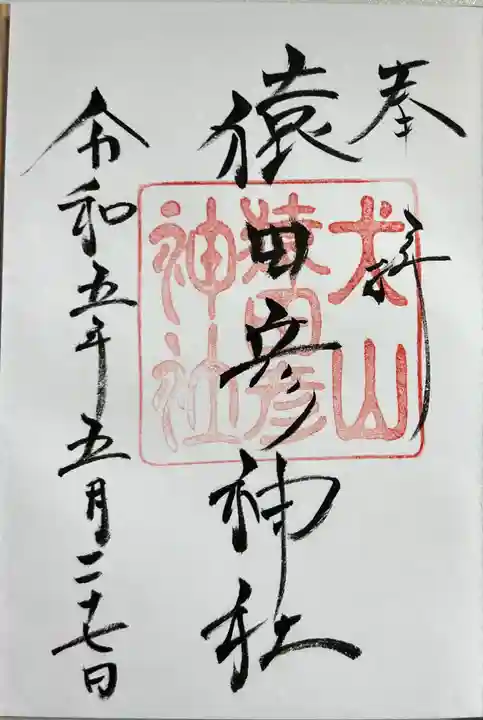 奉拝
猿田彦神社
令和五年五月二十七日
犬山
猿田彦
神社